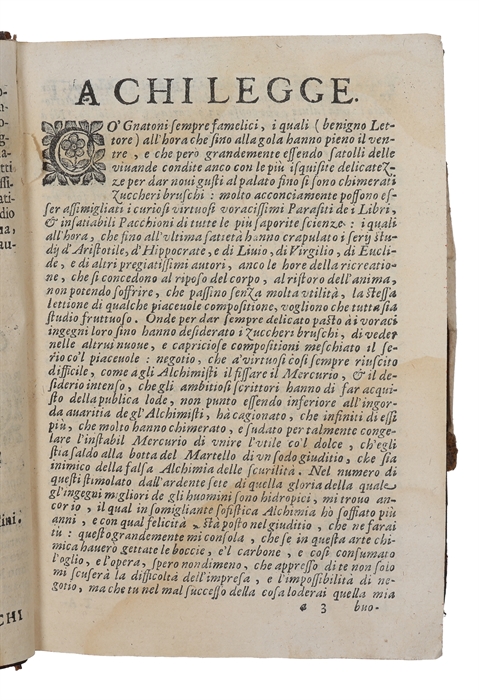 A CHI LEGGE.
QO' Gnatoni sempre famelici, i quali (benigno Let-
tore) all'hora che sino alla gola hanno pieno il ven-
tre, e che però grandemente essendo satolli delle
viuande condite anco con le più isquisite delicatez-
ze per dar noui gusti al palato sino si sono chimerati
zuccheri bruschi: molto acconciamente possono es-
ser assimigliati i curiosi virtuosi voracissimi Parasiti de i Libri,
& insatiabili Pacchioni di tutte le più saporite scienze: i quali
all'hora, che sino all'vltima satietà hanno crapulato i serij stu-
dij d'Aristotile, d'Hippocrate, e di Liuio, di Virgilio, di Eucli-
de, e di altri pregiatissimi autori, anco le hore della ricreatio-
ne, che si concedono al riposo del corpo, al ristoro dell'anima,
non potendo soffrire, che passino senza molta vtilità, la stessa
lettione di qualche piaceuole compositione, vogliono che tutta sia
studio fruttuoso. Onde per dar sempre delicato pasto ài voraci
ingegni loro sino hanno desiderato i zuccheri bruschi, di veder
nelle altrui nuoue, e capriciose compositioni meschiato il se-
rio co'l piaceuole: negotio, che a'virtuosi così sempre riuscito
difficile, come a gli Alchimisti il fissare il Mercurio, & il de-
siderio intenso, che gli ambitiosi scrittori hanno di far acqui-
sto della publica lode, non punto essendo inferiore all'ingor-
da auaritia de gl'Alchimisti, hà cagionato, che infiniti di essi
più, che molto hanno chimerato, e sudato per talmente conge-
lare l'instabil Mercurio di vnire l'vtile co'l dolce, ch'egli
stia saldo alla botta del Martello di vn sodo giuditio, che sia
inimico della falsa Alchimia delle scurilità. Nel numero di
questi stimolato dall'ardente sete di quella gloria della quale
gl'ingegni migliori de gli huomini sono hidropici, mi trouo an-
cor io, il qual in somigliante sofistica Alchimia hò soffiato più
anni, e con qual felicità stà posto nel giuditio, che ne farai
tù: questo grandemente mi consola, che se in questa arte chi-
mica hauero gettate le boccie, e'l carbone, e così consumato
l'oglio, e l'opera, spero nondimeno, che appresso di te non solo
mi scuserà la difficoltà dell'impresa, e l'impossibilità di ne-
gotio, ma che tu nel mal successo della cosa loderai quella mia
a 3 buo-